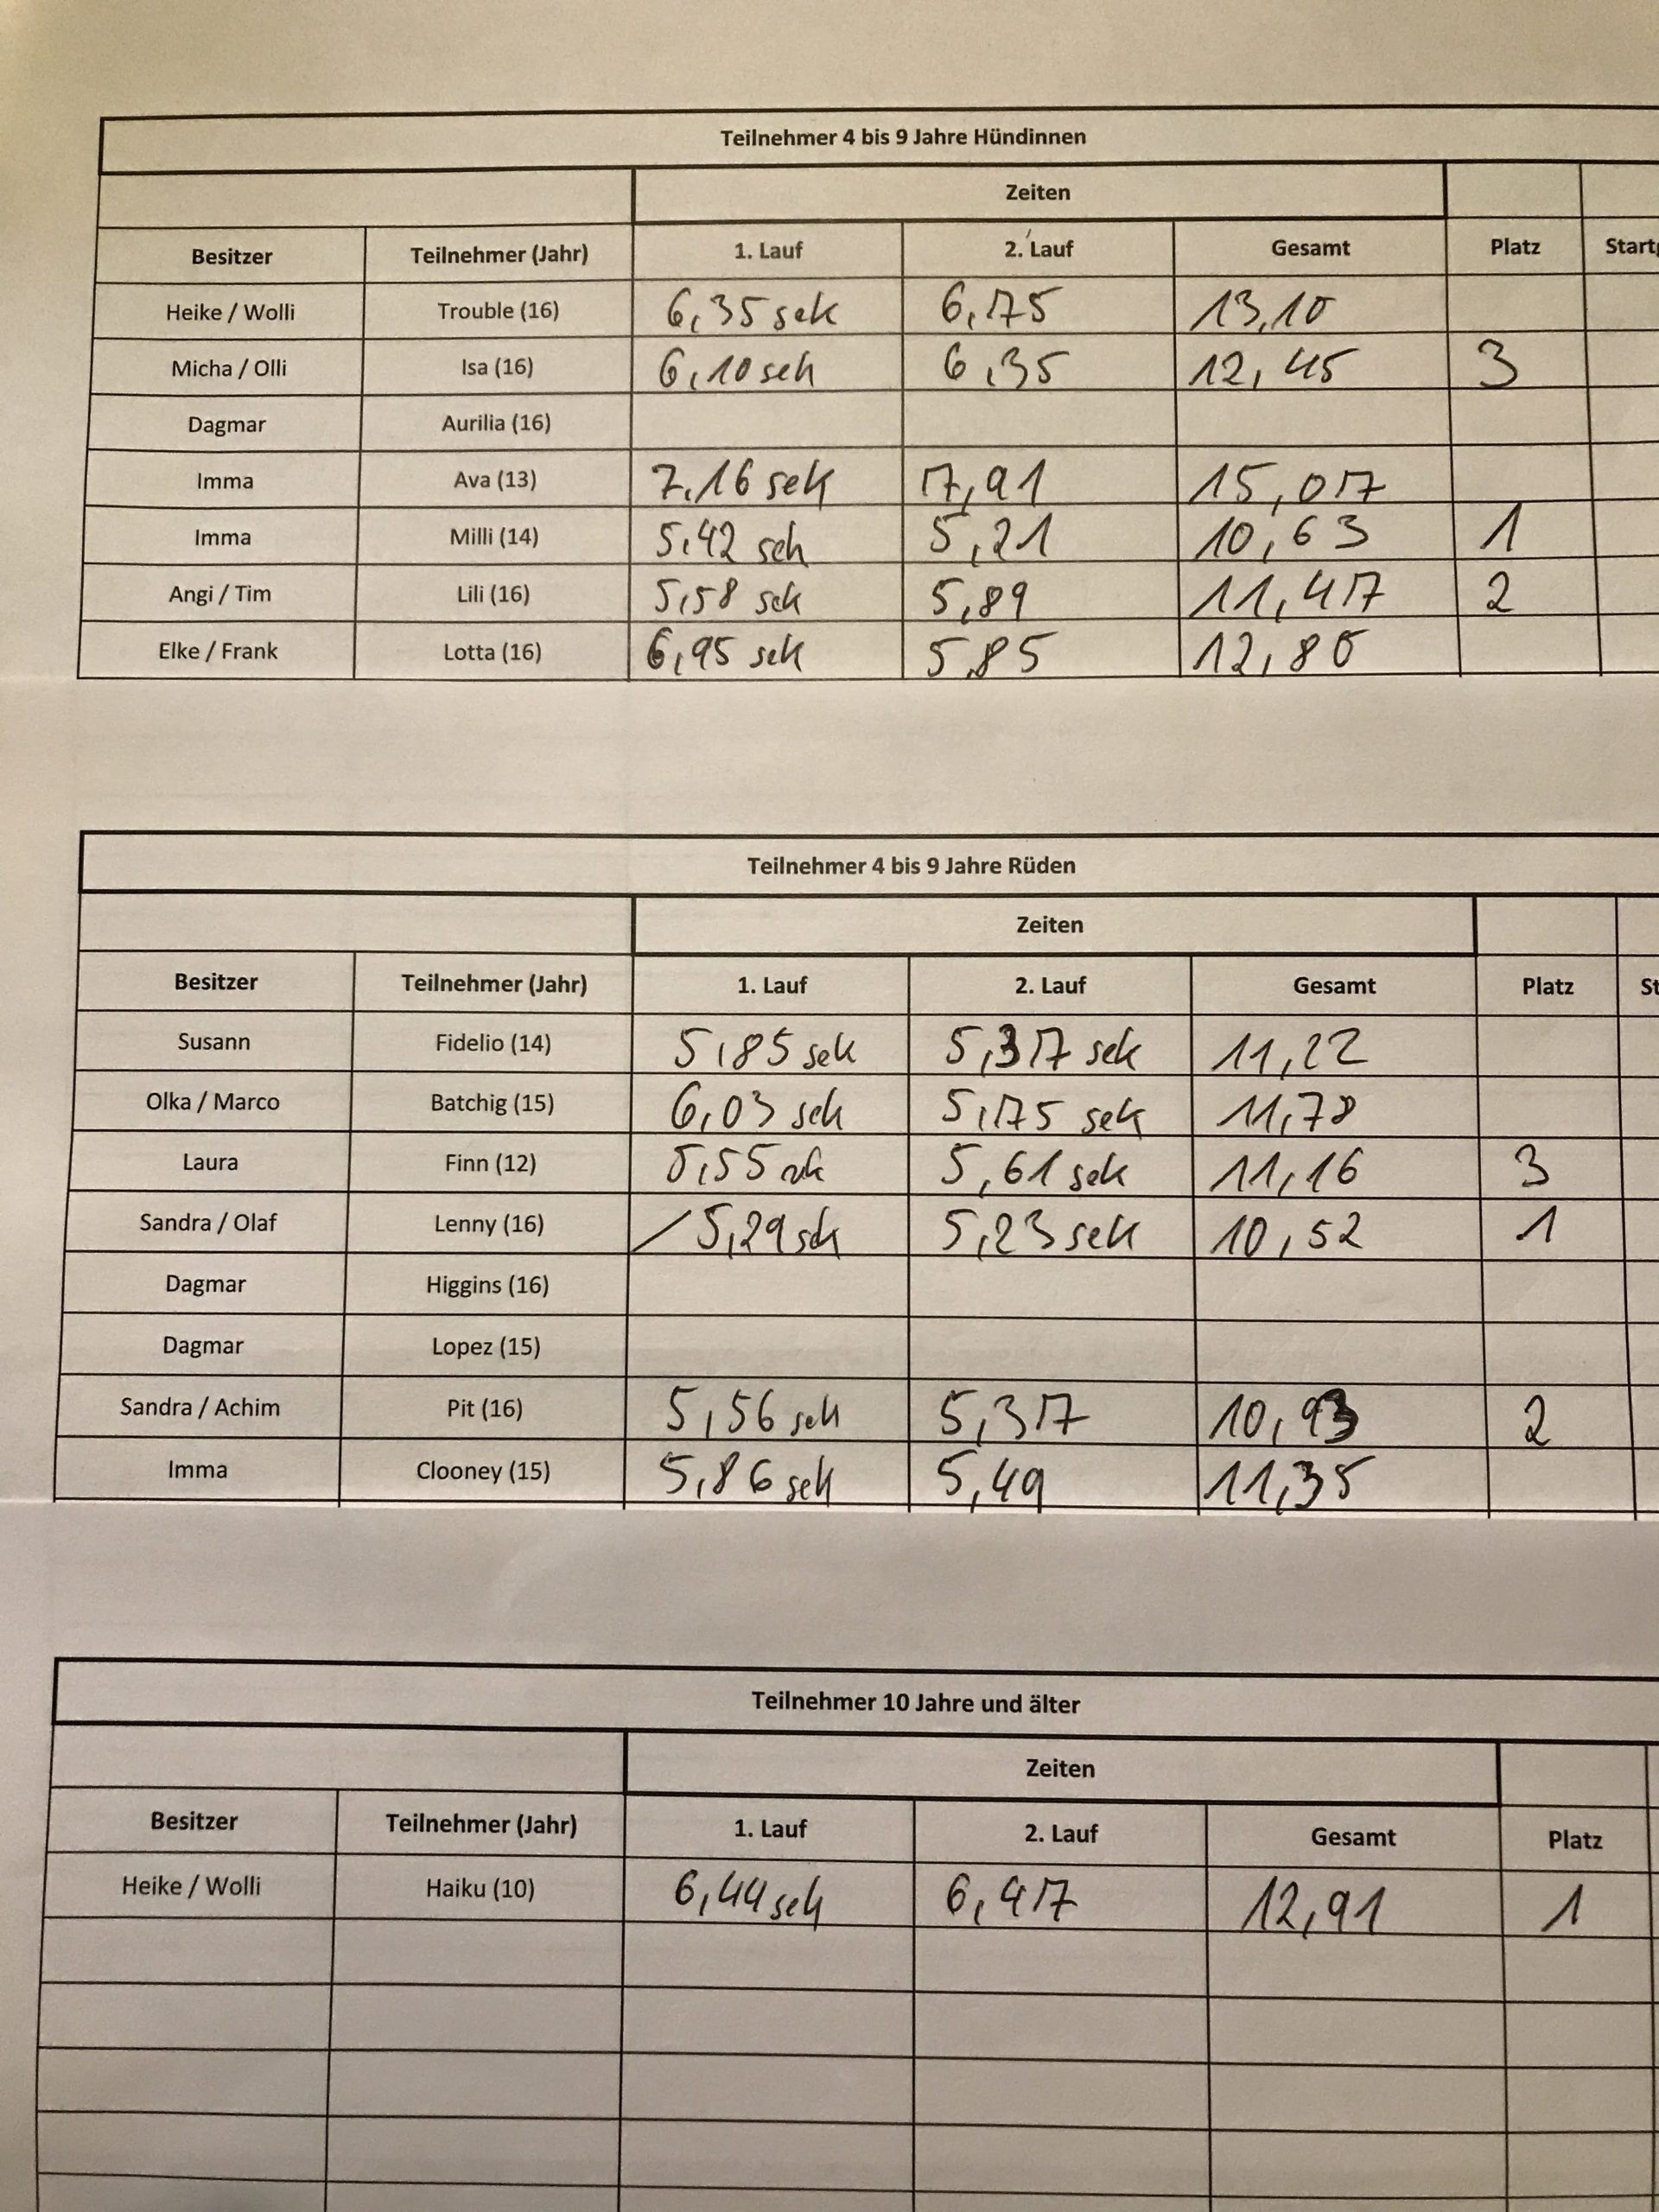 Teilnehmer 4 bis 9 Jahre Hündinnen
Zeiten
Besitzer Teilnehmer (Jahr) 1. Lauf 2. Lauf Gesamt Platz Start
Heike / Wolli Trouble (16) 6,35 sek 6,75 13,10
Micha / Olli Isa (16) 6,10 sek 6,35 12,45 3
Dagmar Aurilia (16)
Imma Ava (13) 7,16 sek 7,91 15,07
Imma Milli (14) 5,42 sek 5,21 10,63 1
Angi / Tim Lili (16) 5,58 sek 5,89 11,47 2
Elke / Frank Lotta (16) 6,95 sek 5,85 12,80
Teilnehmer 4 bis 9 Jahre Rüden
Zeiten
Besitzer Teilnehmer (Jahr) 1. Lauf 2. Lauf Gesamt Platz St
Susann Fidelio (14) 5,85 sek 5,37 sek 11,22
Olka / Marco Batchig (15) 6,03 sek 5,75 sek 11,78
Laura Finn (12) 5,55 sek 5,61 sek 11,16 3
Sandra / Olaf Lenny (16) 5,29 sek 5,23 sek 10,52 1
Dagmar Higgins (16)
Dagmar Lopez (15)
Sandra / Achim Pit (16) 5,56 sek 5,37 10,93 2
Imma Clooney (15) 5,86 sek 5,49 11,35
Teilnehmer 10 Jahre und älter
Zeiten
Besitzer Teilnehmer (Jahr) 1. Lauf 2. Lauf Gesamt Platz
Heike / Wolli Haiku (10) 6,44 sek 6,47 12,91 1